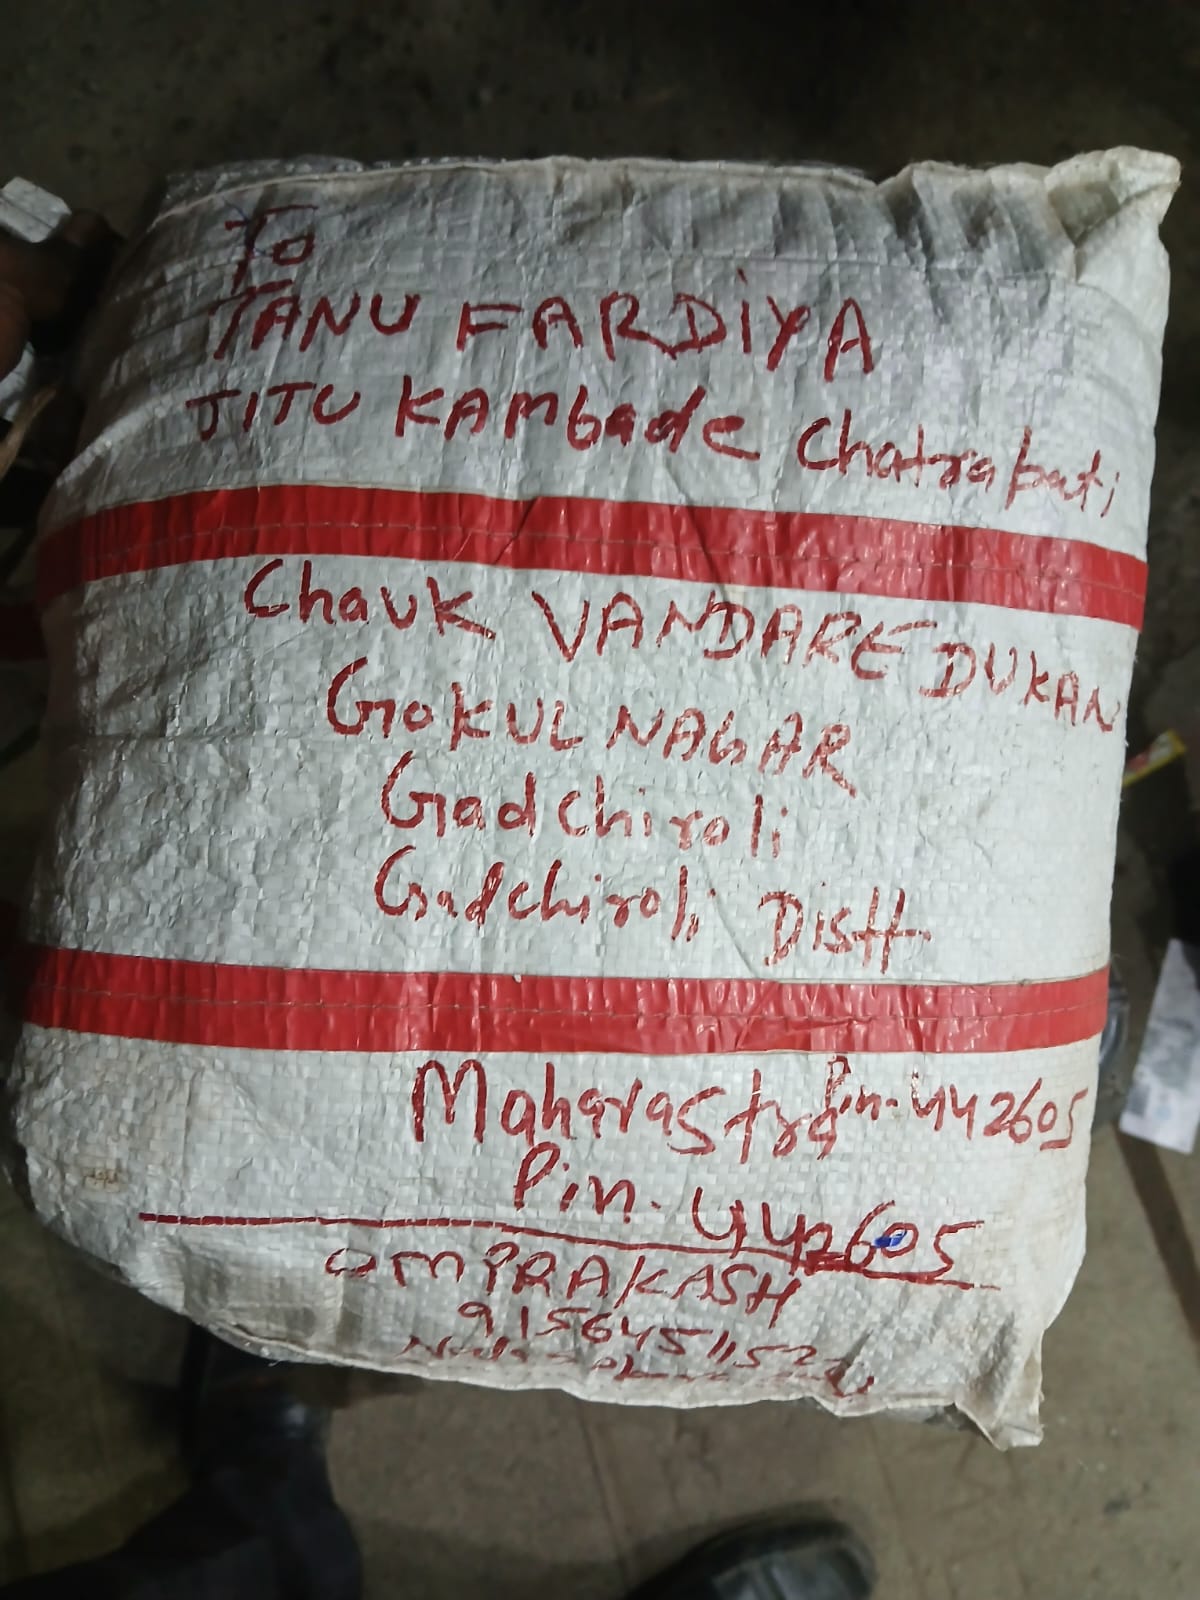 To
TANU FARDIYA
JITU KAMbade Chatrapati
Chauk VANDARE DUKAN
GOKUL NAGAR
Gadchiroli
Gadchiroli Distt
Maharastra Pin-442605
Pin-442605
OM PRAKASH